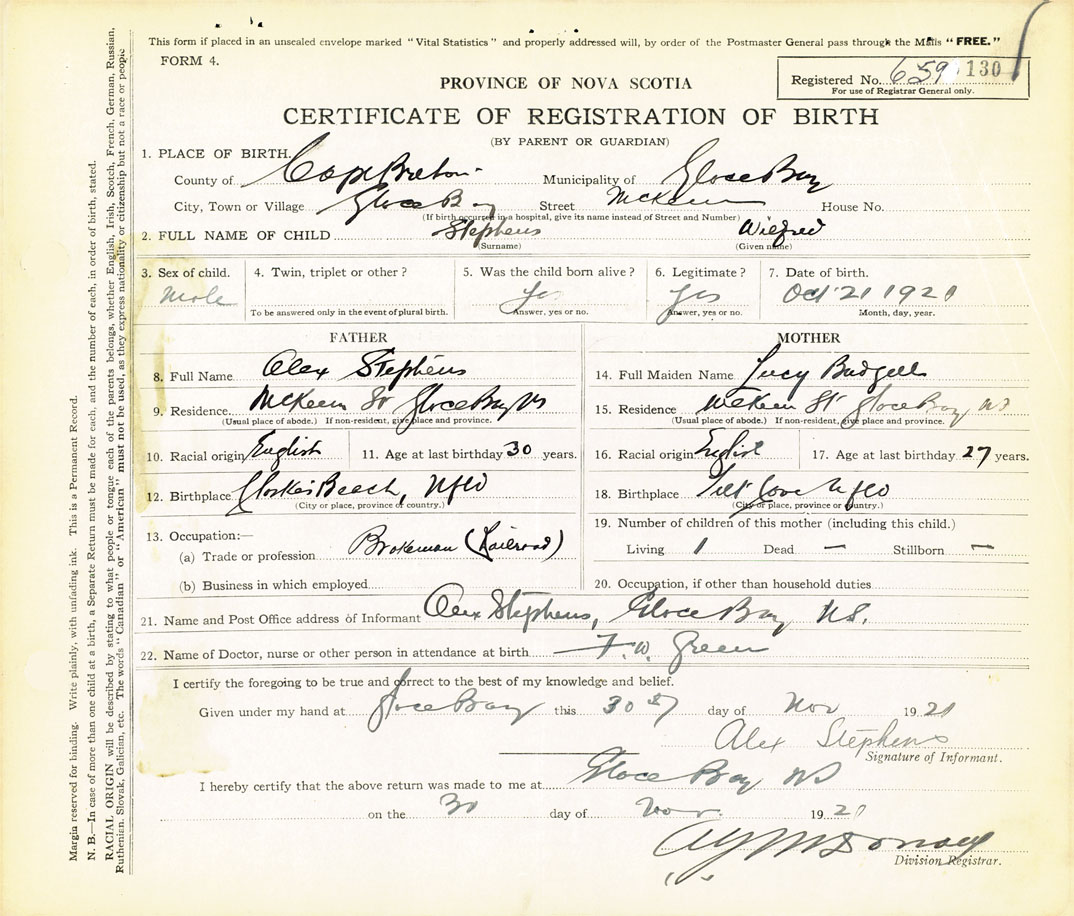 This form if placed in an unsealed envelope marked "Vital Statistics" and properly addressed will, by order of the Postmaster General pass through the Mails "FREE."
FORM 4.
Registered No. 659 130
For use of Registrar General only.
PROVINCE OF NOVA SCOTIA
CERTIFICATE OF REGISTRATION OF BIRTH
(BY PARENT OR GUARDIAN)
1. PLACE OF BIRTH.
County of Cape Breton Municipality of Glace Bay
City, Town or Village Glace Bay Street McKeen House No.
(If birth occurred in a hospital, give its name instead of Street and Number)
2. FULL NAME OF CHILD Stephens Wilfred
(Surname) (Given name)
3. Sex of child. 4. Twin, triplet or other? 5. Was the child born alive? 6. Legitimate? 7. Date of birth.
Male yes yes Oct 21 1921
To be answered only in the event of plural birth. Answer, yes or no. Answer, yes or no. Month, day, year.
FATHER MOTHER
8. Full Name Alex Stephens 14. Full Maiden Name Lucy Budgell
9. Residence McKeen St Glace Bay NS 15. Residence McKeen St Glace Bay NS
(Usual place of abode.) If non-resident, give place and province. (Usual place of abode.) If non-resident, give place and province.
10. Racial origin English 11. Age at last birthday 30 years. 16. Racial origin English 17. Age at last birthday 27 years.
12. Birthplace Beech, Nfld 18. Birthplace Tilt Cove Nfld
(City or place, province or country.) (City or place, province or country.)
13. Occupation:— 19. Number of children of this mother (including this child.)
(a) Trade or profession Brakeman (Railroad) Living 1 Dead — Stillborn —
(b) Business in which employed 20. Occupation, if other than household duties
21. Name and Post Office address of Informant Alex Stephens, Glace Bay N.S.
22. Name of Doctor, nurse or other person in attendance at birth F. W. Green
I certify the foregoing to be true and correct to the best of my knowledge and belief.
Given under my hand at Glace Bay this 30th day of Nov 1921
Alex Stephens
Signature of Informant.
I hereby certify that the above return was made to me at Glace Bay NS
on the 30 day of Nov. 1921
McDonald
Division Registrar.
Margin reserved for binding. Write plainly, with unfading ink. This is a Permanent Record.
N. B.—In case of more than one child at a birth, a Separate Return must be made for each, and the number of each, in order of birth, stated.
RACIAL ORIGIN will be described by stating to what people or tongue each of the parents belongs, whether English, Irish, Scotch, French, German, Russian,
Ruthenian, Slovak, Galician, etc. The words "Canadian" or "American" must not be used, as they express nationality or citizenship but not a race or people